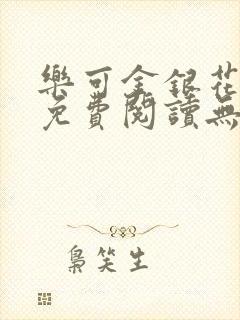 樂可金銀花
免費閱讀無
梟笑生